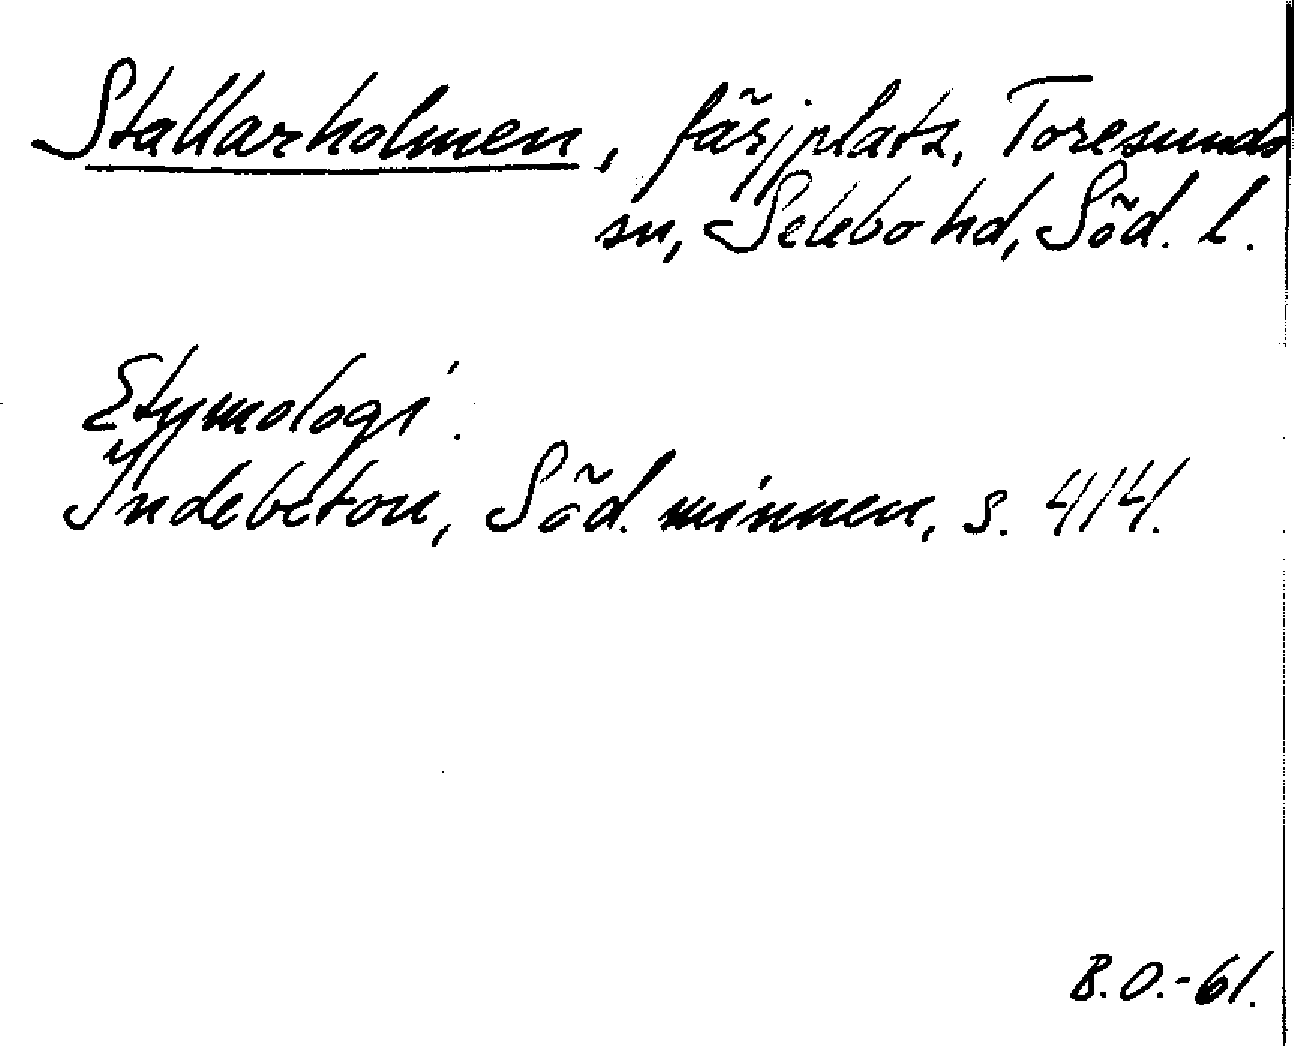 Stallarholmen, färjplats, Toresunds
sn, Selebo hd, Söd. l.
Etymologi.
Indebetou, Söd. minnen, s. 414.
B.O.-61.